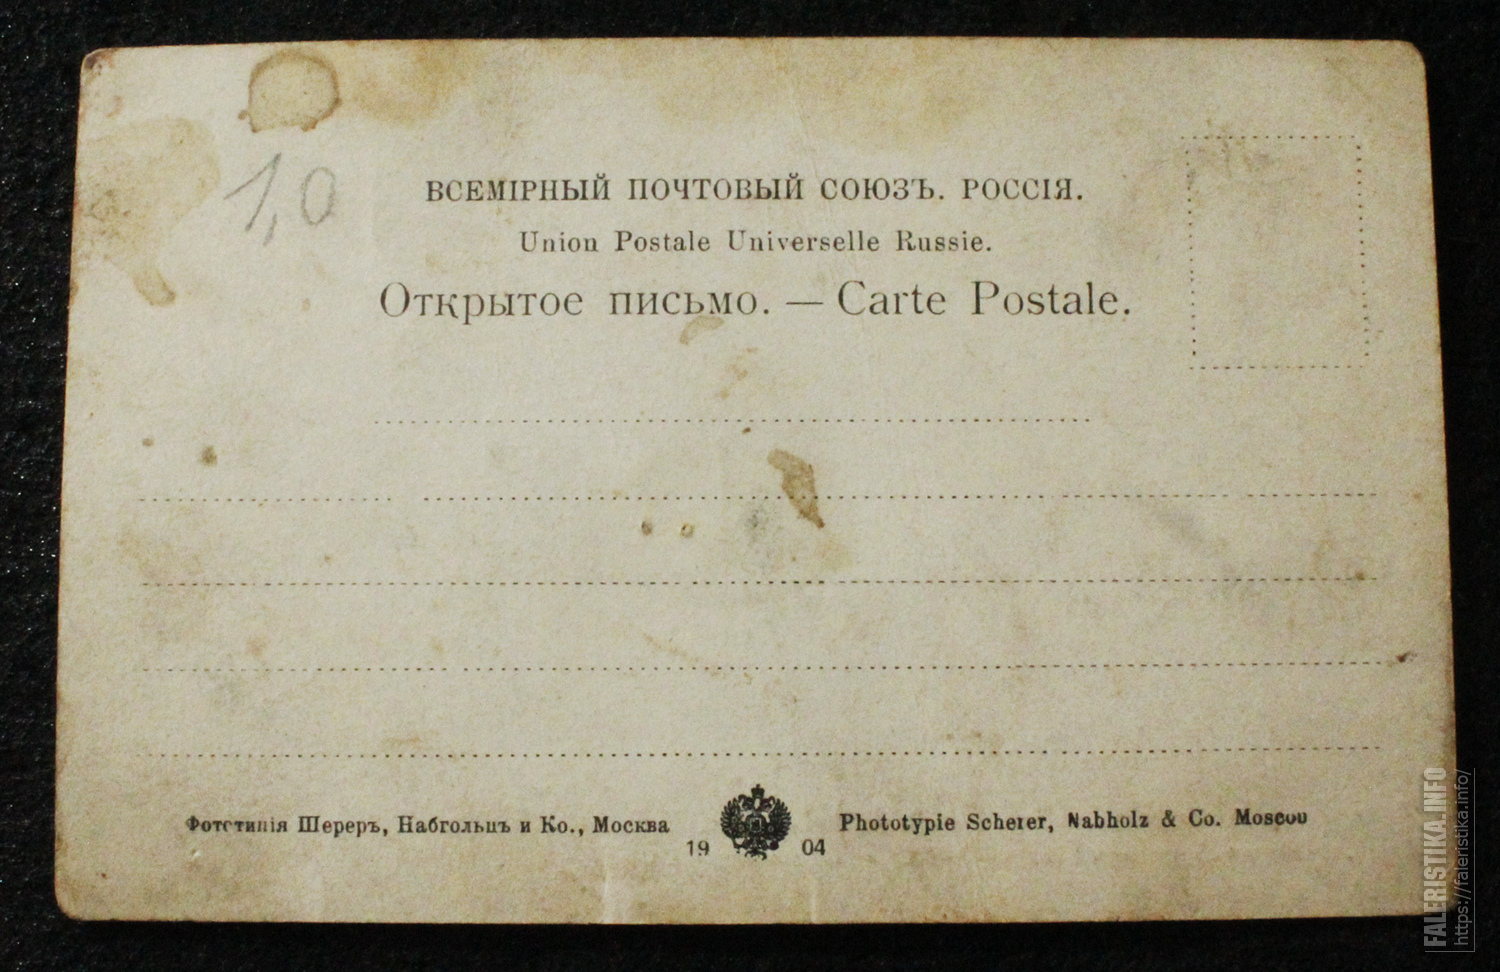 1,0
ВСЕМІРНЫЙ ПОЧТОВЫЙ СОЮЗЪ. РОССІЯ.
Union Postale Universelle Russie.
Открытое письмо. — Carte Postale.
Фототипія Шереръ, Набгольцъ и Ко., Москва
19 04
Phototypie Scherer, Nabholz & Co. Moscou
FALERISTIKA.INFO
https://faleristika.info/